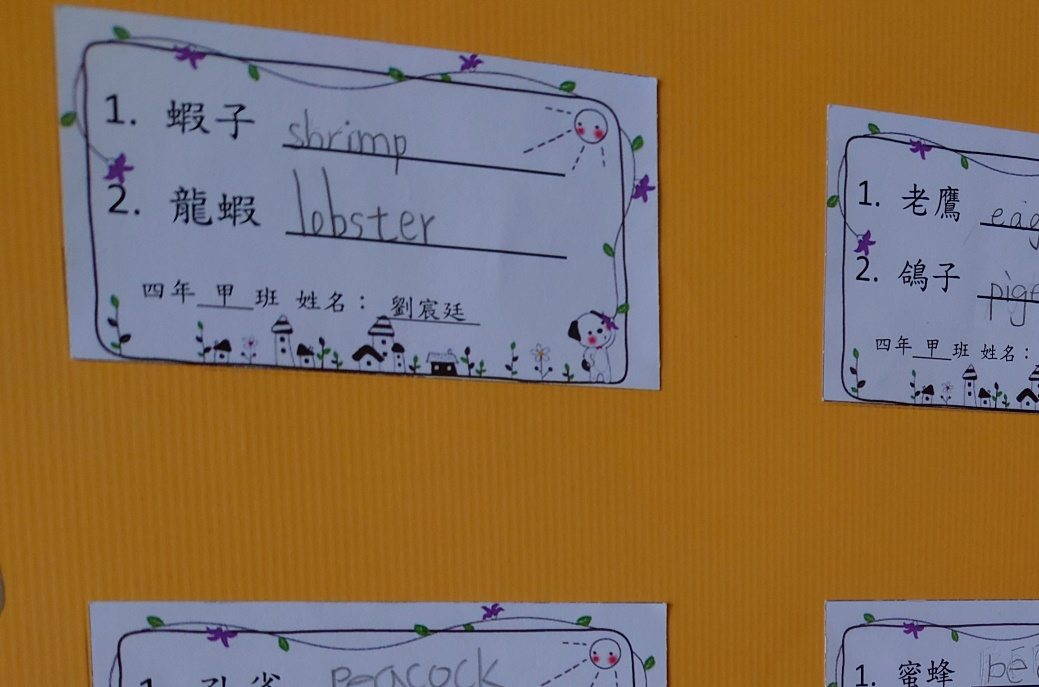 1. 蝦子 shrimp
2. 龍蝦 lobster
四年 甲 班 姓名： 劉宸廷
1. 老鷹
2. 鴿子
四年 甲 班 姓名：
peacock
1. 蜜蜂